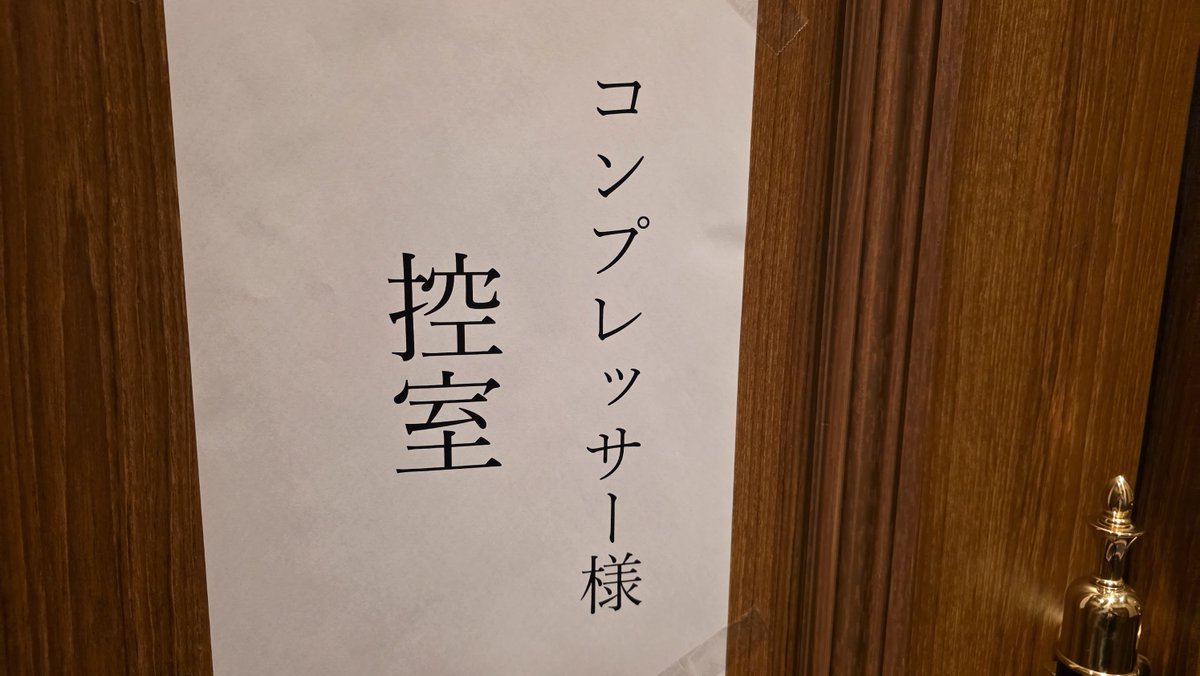 コンプレッサー様
控室